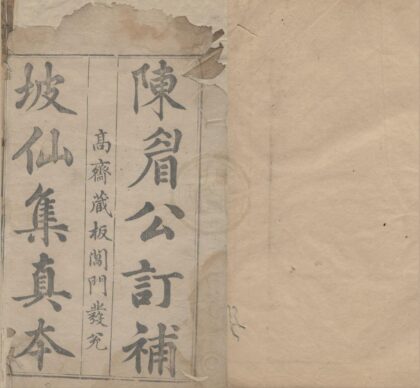 陳眉公訂補
高齋藏板閶門發兌
坡仙集真本